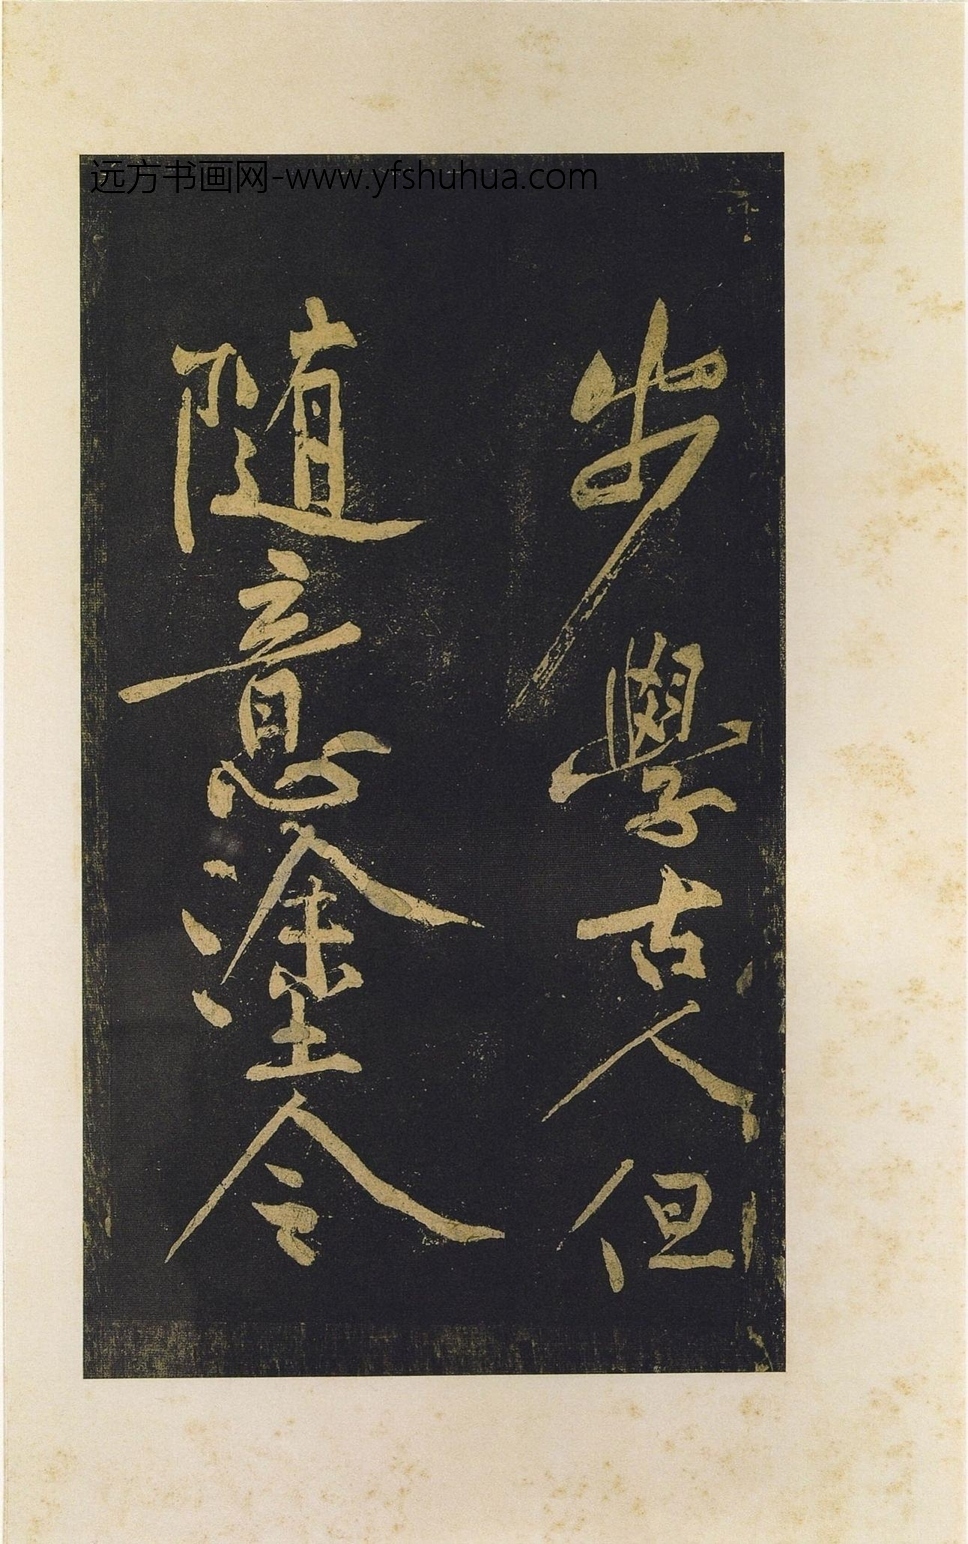 远方书画网-www.yfshuhua.com
步學古人但
隨意塗令